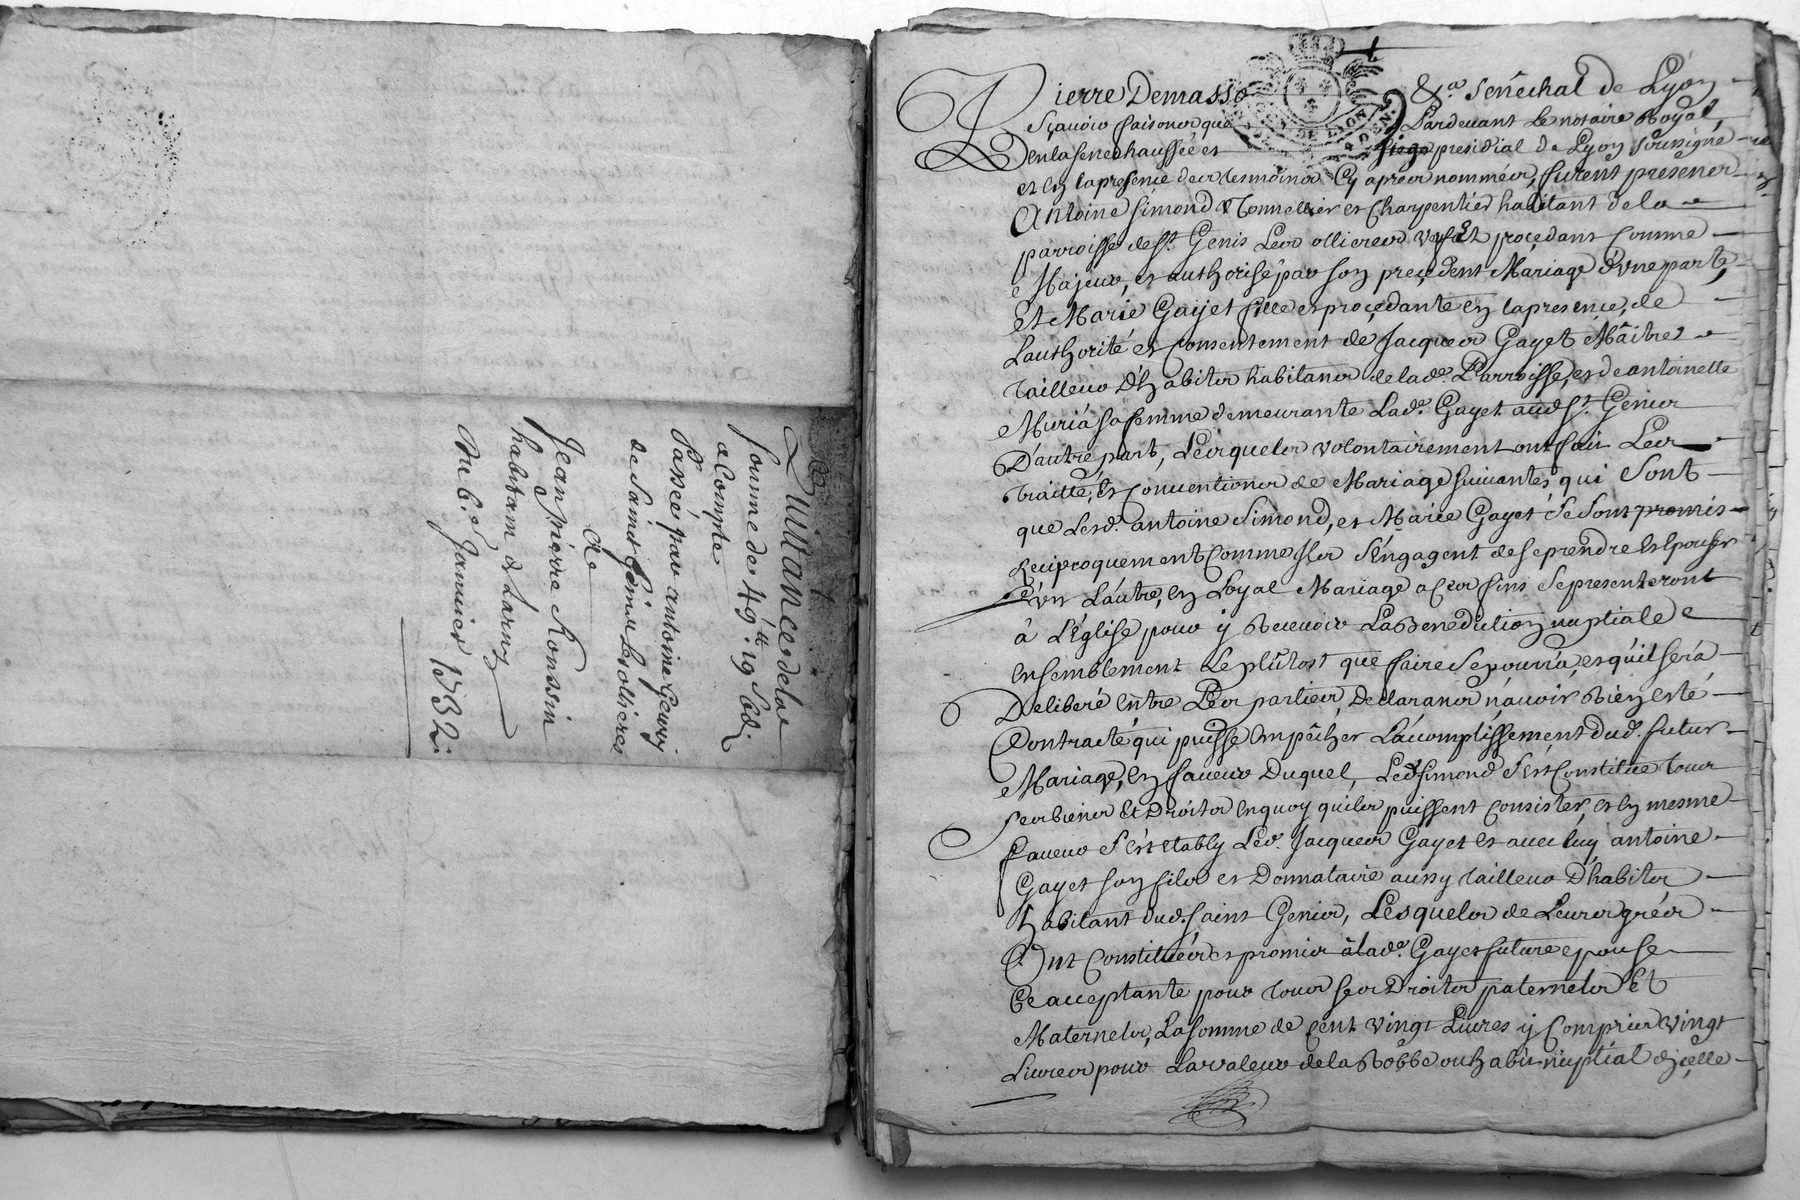 Quittance dela
somme de 49.tt 19 s. 6 d.
a Compte
Passée par antoine Geury
de Saint Genis Lesollieres
A
Jean pierre Ronssin
habitant d Larny
Du 6.e Janvier 1732.
Pierre Demasso &.a senéchal de Lyon
Sçauoir faisons que Pardeuant Le notaire Royal,
En la senechaussée et siege presidial de Lyon soussigné
et En la presence des tesmoins Cy apres nommés, furent presens
Antoine Simond Tonnellier et Charpentier habitant de la
parroisse de St. Genis Les ollieres veuf et procedant Comme
Majeur, et authorisé par son precedent Mariage d'vne part,
et Marie Gayet fille et procedante En la presence, de
Lauthorité et Consentement de Jacques Gayet Mâitre
tailleur D'habits habitans de lad.e Parroisse, et de antoinette
Muriá sa femme demeurante Lad.e Gayet aud. St. Genis
D'autre part, Lesquels volontairement ont fait Les
traitté, Et Conuentions de Mariage suiuantes qui Sont
que Lesd. antoine Simond, et Marie Gayet Se Sont promis
Reciproquement Comme Ils S'engagent de se prendre Et Epouser
L'vn L'autre, En Loyal Mariage a Ces fins Se presenteront
à L'Eglise pour y Receuoir La Benediction nuptiale
Ensemblement Le plûtost que faire Se pourra, et qu'il Será
Deliberé Entre Les parties, Declarans n'auoir Rien esté
Contracté qui puisse Empêcher L'acomplissement dud. futur
Mariage, En faueur Duquel, Led. Simond S'est Constitüé tous
Ses biens Et Droits En quoy qu'ils puissent Consister, et En mesme
faueur S'est Etably Led. Jacques Gayet et auec luy antoine
Gayet son fils et Donnataire aussy tailleur D'habits
habitant dud. Saint Genis, Lesquels de Leurs grés
Ont Constitués et promis à lad.e Gayet future epouse
Ce acceptante pour tous ses Droits paternels Et
Maternels, La Somme de Cent vingt Liures y Compris vingt
Liures pour La valeur de la Robbe ou habit nuptial d'icelle